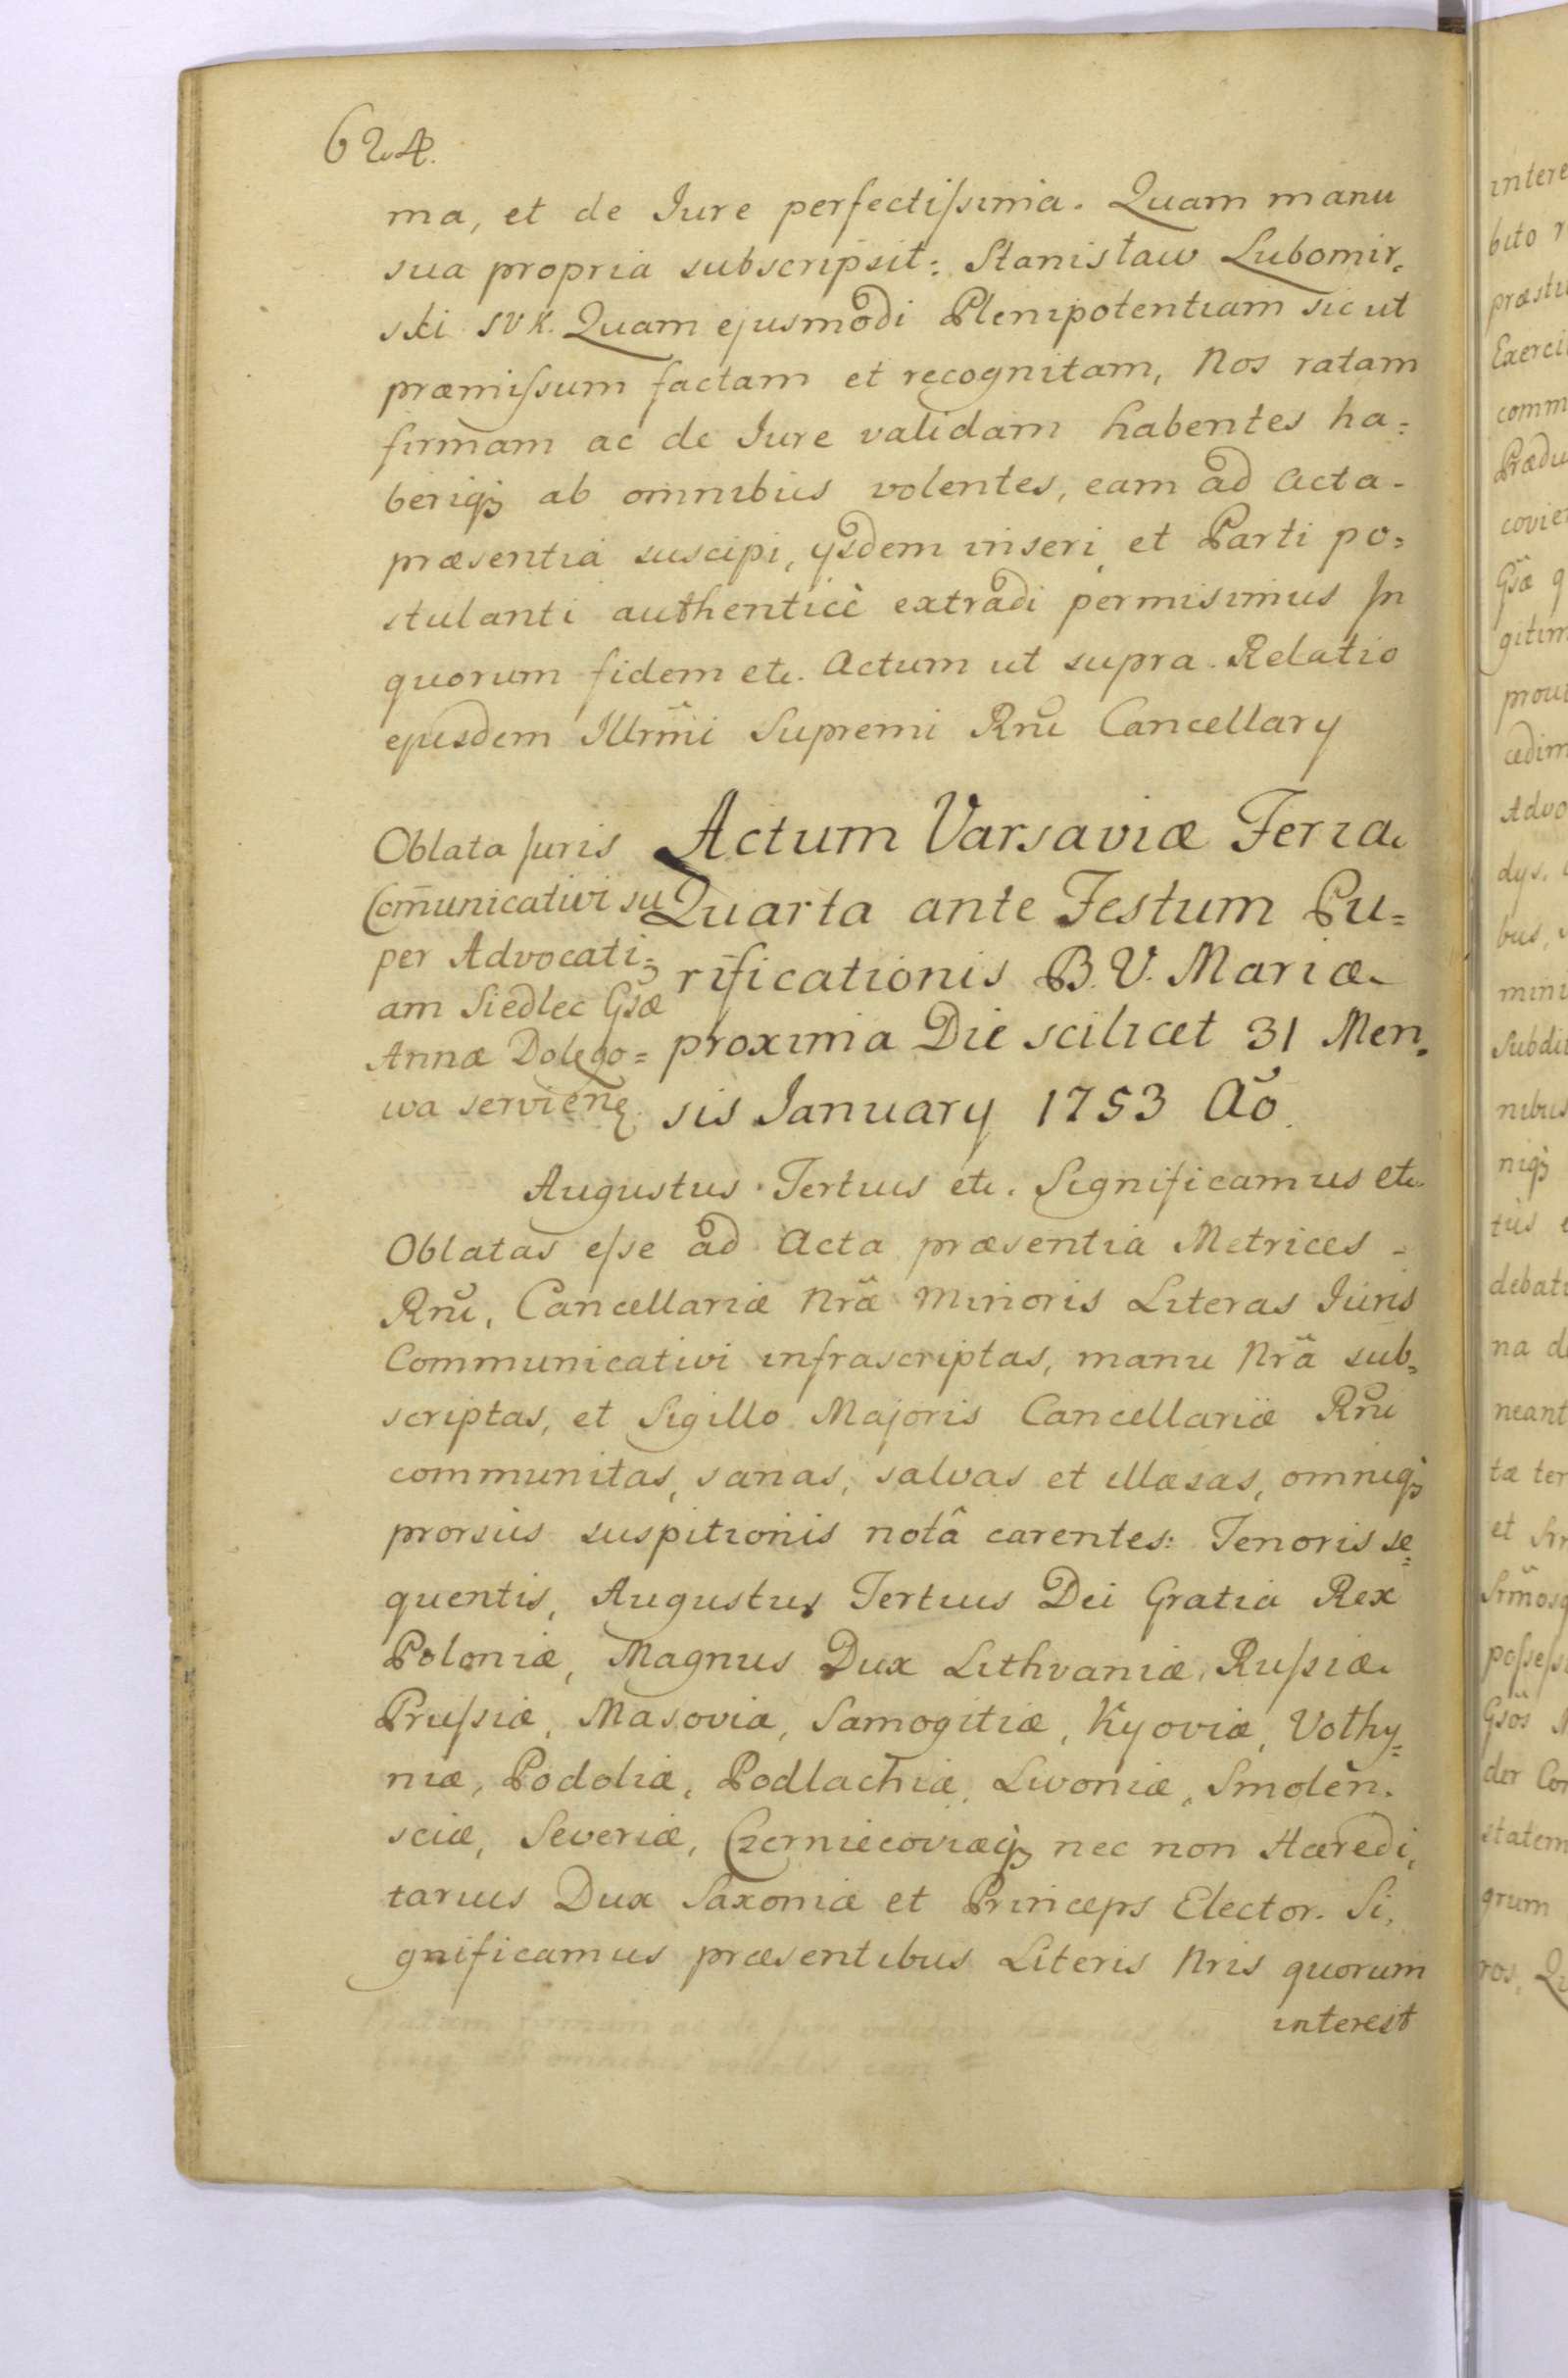 624.
ma, et de Jure perfectiſsima. Quam manu
sua propria subscripsit: Stanisław Lubomir,
ski SVK. Quam ejusmodi Plenipotentiam sic ut
præmiſsum factam et recognitam, Nos ratam
firmam ac de Jure validam habentes ha=
beriqꝫ ab omnibus volentes, eam ad Acta
præsentia suscipi, ijsdem inseri, et Parti po=
stulanti authenticè extradi permisimus In
quorum fidem etc. Actum ut supra. Relatio
ejusdem Illrm̃i Supremi Rñi Cancellary
Oblata Juris
Com̃unicativi su
per Advocati=
am Siedlec Gsæ
Annæ Dolego=
wa servienę.
Actum Varsaviæ Feria
Quarta ante Festum Pu=
rificationis B. V. Mariæ
proxima Die scilicet 31 Men=
sis January 1753 Aõ.
Augustus Tertius etc. Significamus etc.
Oblatas eſse ad Acta præsentia Metrices
Rñi, Cancellariæ Nrã Minoris Literas Juris
Communicativi infrascriptas, manu Nrã sub=
scriptas, et Sigillo Majoris Cancellariæ Rñi
communitas, sanas, salvas et illæsas, omniqꝫ
prorsus suspitionis notâ carentes: Tenoris se=
quentis, Augustus Tertius Dei Gratia Rex
Poloniæ, Magnus Dux Lithvaniæ, Ruſsiæ
Pruſsiæ, Masoviæ, Samogitiæ, Kyoviæ, Volhy=
niæ, Podoliæ, Podlachiæ, Livoniæ, Smolen=
sciæ, Severiæ, Czerniecoviæqꝫ nec non Hæredi,
tarius Dux Saxoniæ et Princeps Elector. Si,
gnificamus præsentibus Literis Nris quorum
interest